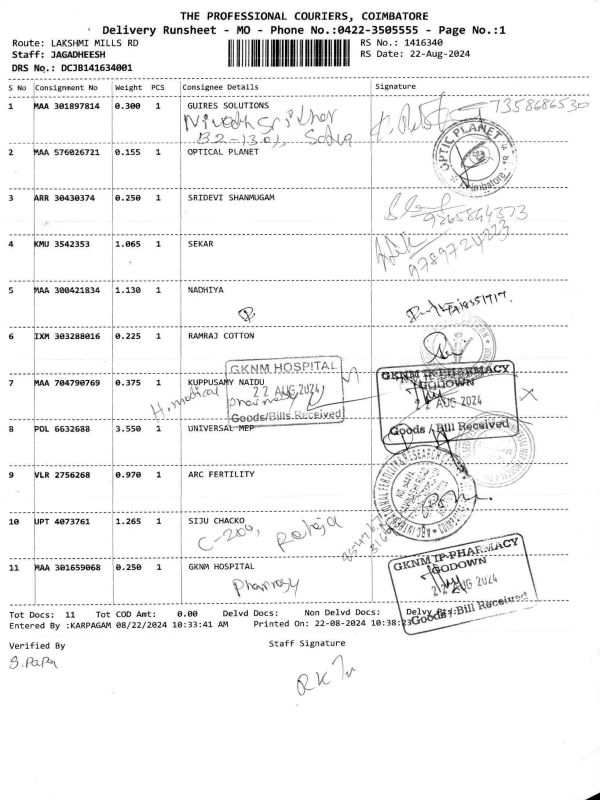 THE PROFESSIONAL COURIERS, COIMBATORE
Delivery Runsheet - MO - Phone No.:0422-3505555 - Page No.:1
Route: LAKSHMI MILLS RD RS No.: 1416340
Staff: JAGADHEESH RS Date: 22-Aug-2024
DRS No.: DCJB141634001
S No Consignment No Weight PCS Consignee Details Signature
1 MAA 301897814 0.300 1 GUIRES SOLUTIONS 7358686530
2 MAA 576026721 0.155 1 OPTICAL PLANET
OPTIC PLANET
Coimbatore
3 ARR 30430374 0.250 1 SRIDEVI SHANMUGAM
4 KMU 3542353 1.065 1 SEKAR
9789724223
5 MAA 300421834 1.130 1 NADHIYA
6 IXM 303288016 0.225 1 RAMRAJ COTTON
GKNM HOSPITAL
22 AUG 2024
Goods/Bills Received
GKNM IP-PHARMACY
GODOWN
22 AUG 2024
Goods / Bill Received
7 MAA 704790769 0.375 1 KUPPUSAMY NAIDU
H. medical Pharmacy
8 PDL 6632688 3.550 1 UNIVERSAL MEP
9 VLR 2756268 0.970 1 ARC FERTILITY
10 UPT 4073761 1.265 1 SIJU CHACKO
C-206, Raheja
11 MAA 301659068 0.250 1 GKNM HOSPITAL
Pharmacy
GKNM IP-PHARMACY
GODOWN
22 AUG 2024
Goods / Bill Received
Tot Docs: 11 Tot COD Amt: 0.00 Delvd Docs: Non Delvd Docs:
Entered By :KARPAGAM 08/22/2024 10:33:41 AM Printed On: 22-08-2024 10:38:23
Verified By Staff Signature
S. Papa